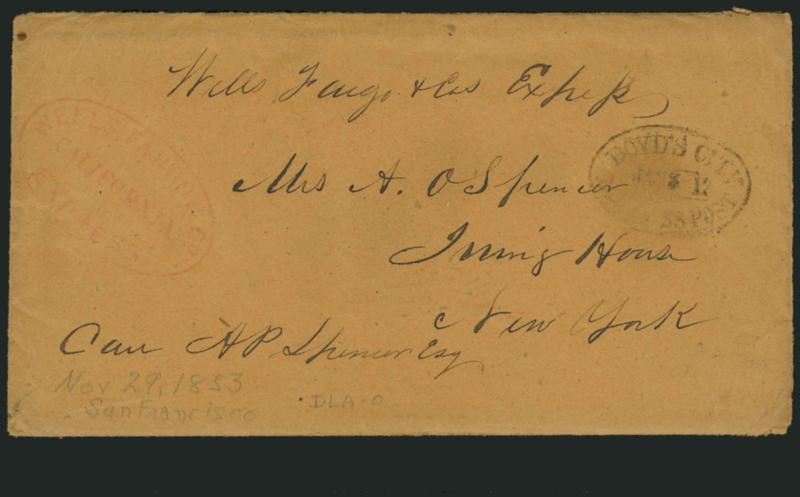 Wells Fargo & Cos Express
WELLS, FARGO & CO
CALIFORNIA
EXPRESS
BOYD'S CITY
12
SS POST
Mrs A. O Spencer
Irving House
New York
Care A P Spencer Esq
Nov 29, 1853
San Francisco
DLA-O